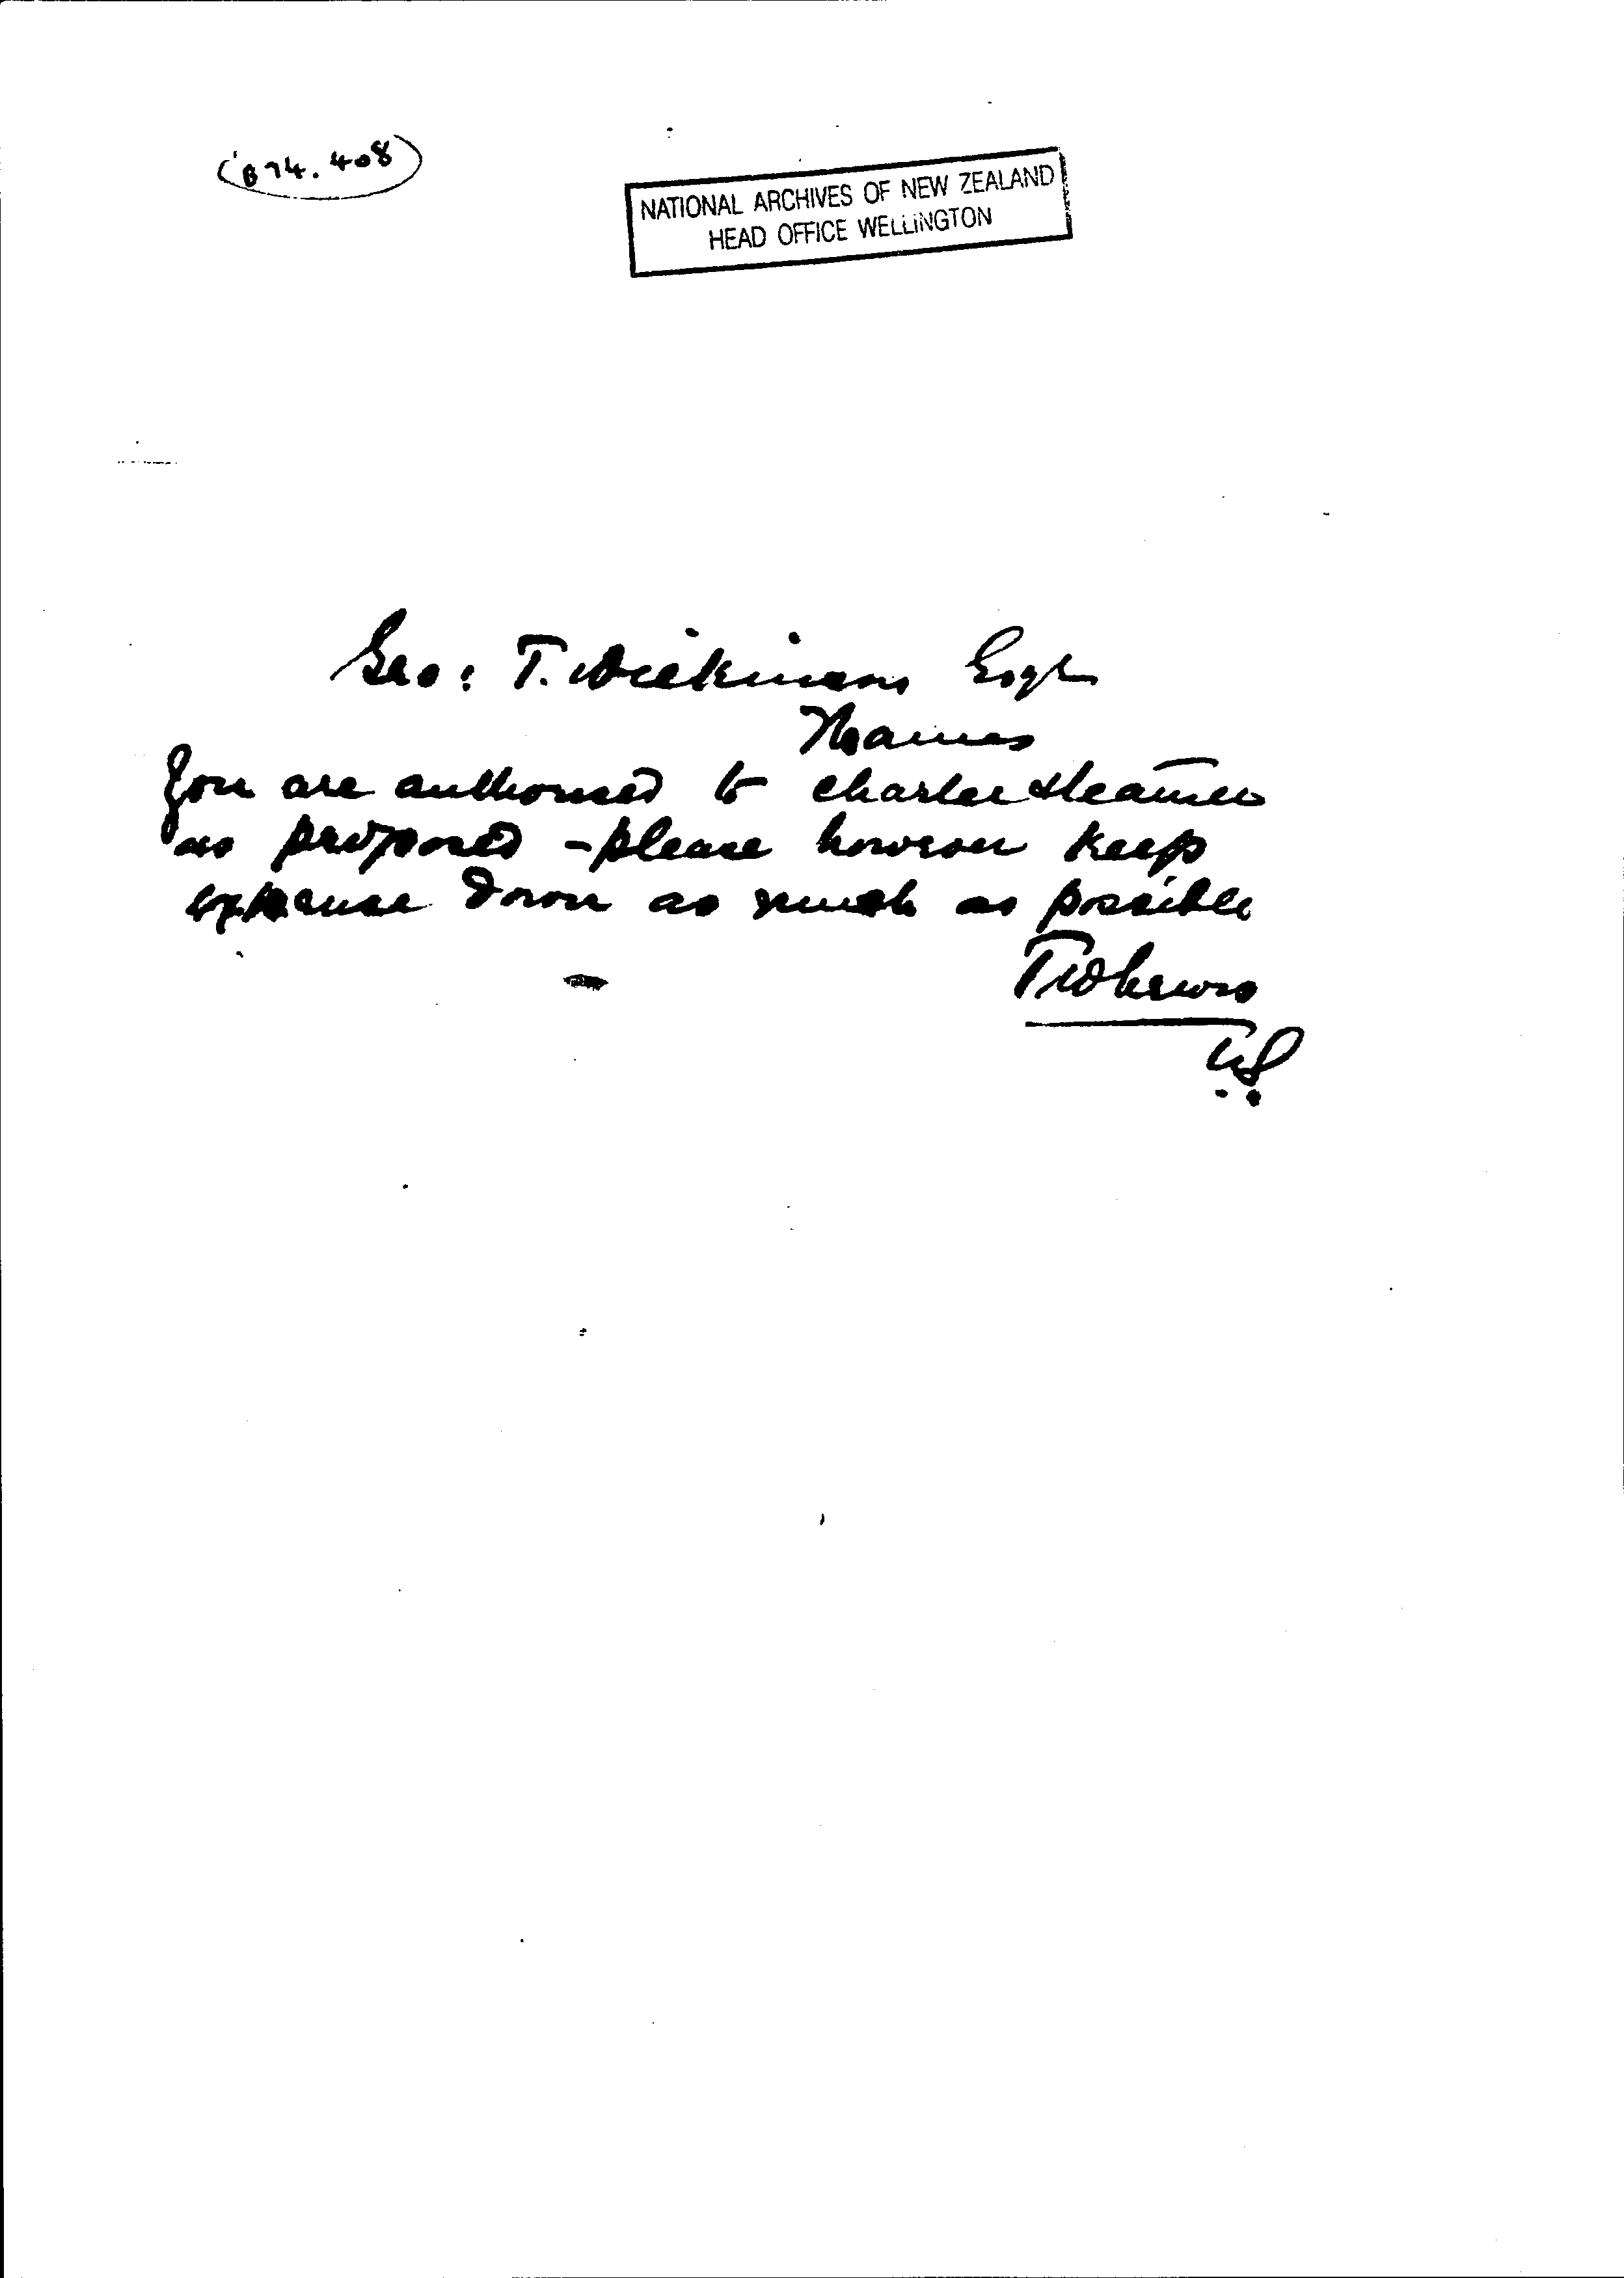 (874.408)
NATIONAL ARCHIVES OF NEW ZEALAND
HEAD OFFICE WELLINGTON
Geo: T. Wilkinson Esqr
Thames
You are authorised to charter steamer
as proposed - please however keep
expense down as much as possible
TWLewis
US.